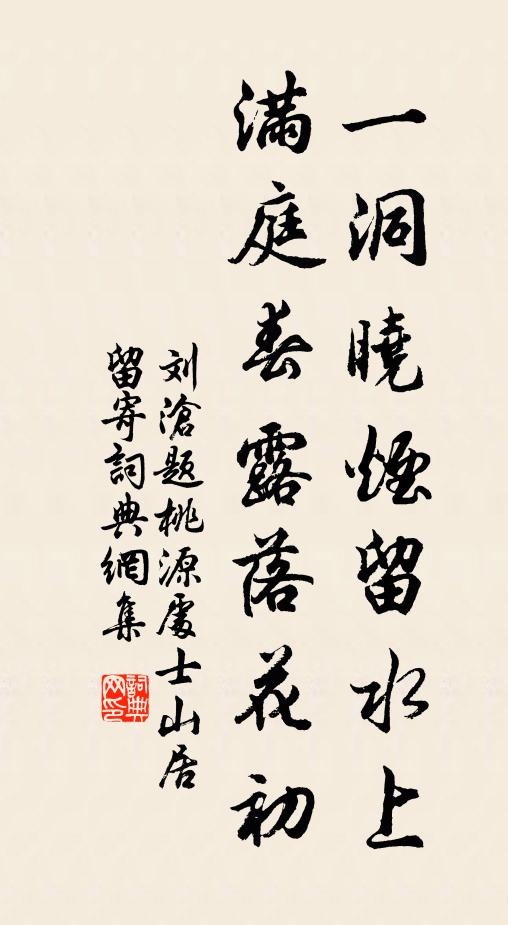 一洞曉煙留水上
滿庭春露落花初
刘滄題桃源處士山居
留寄詞典網集
詞典網印